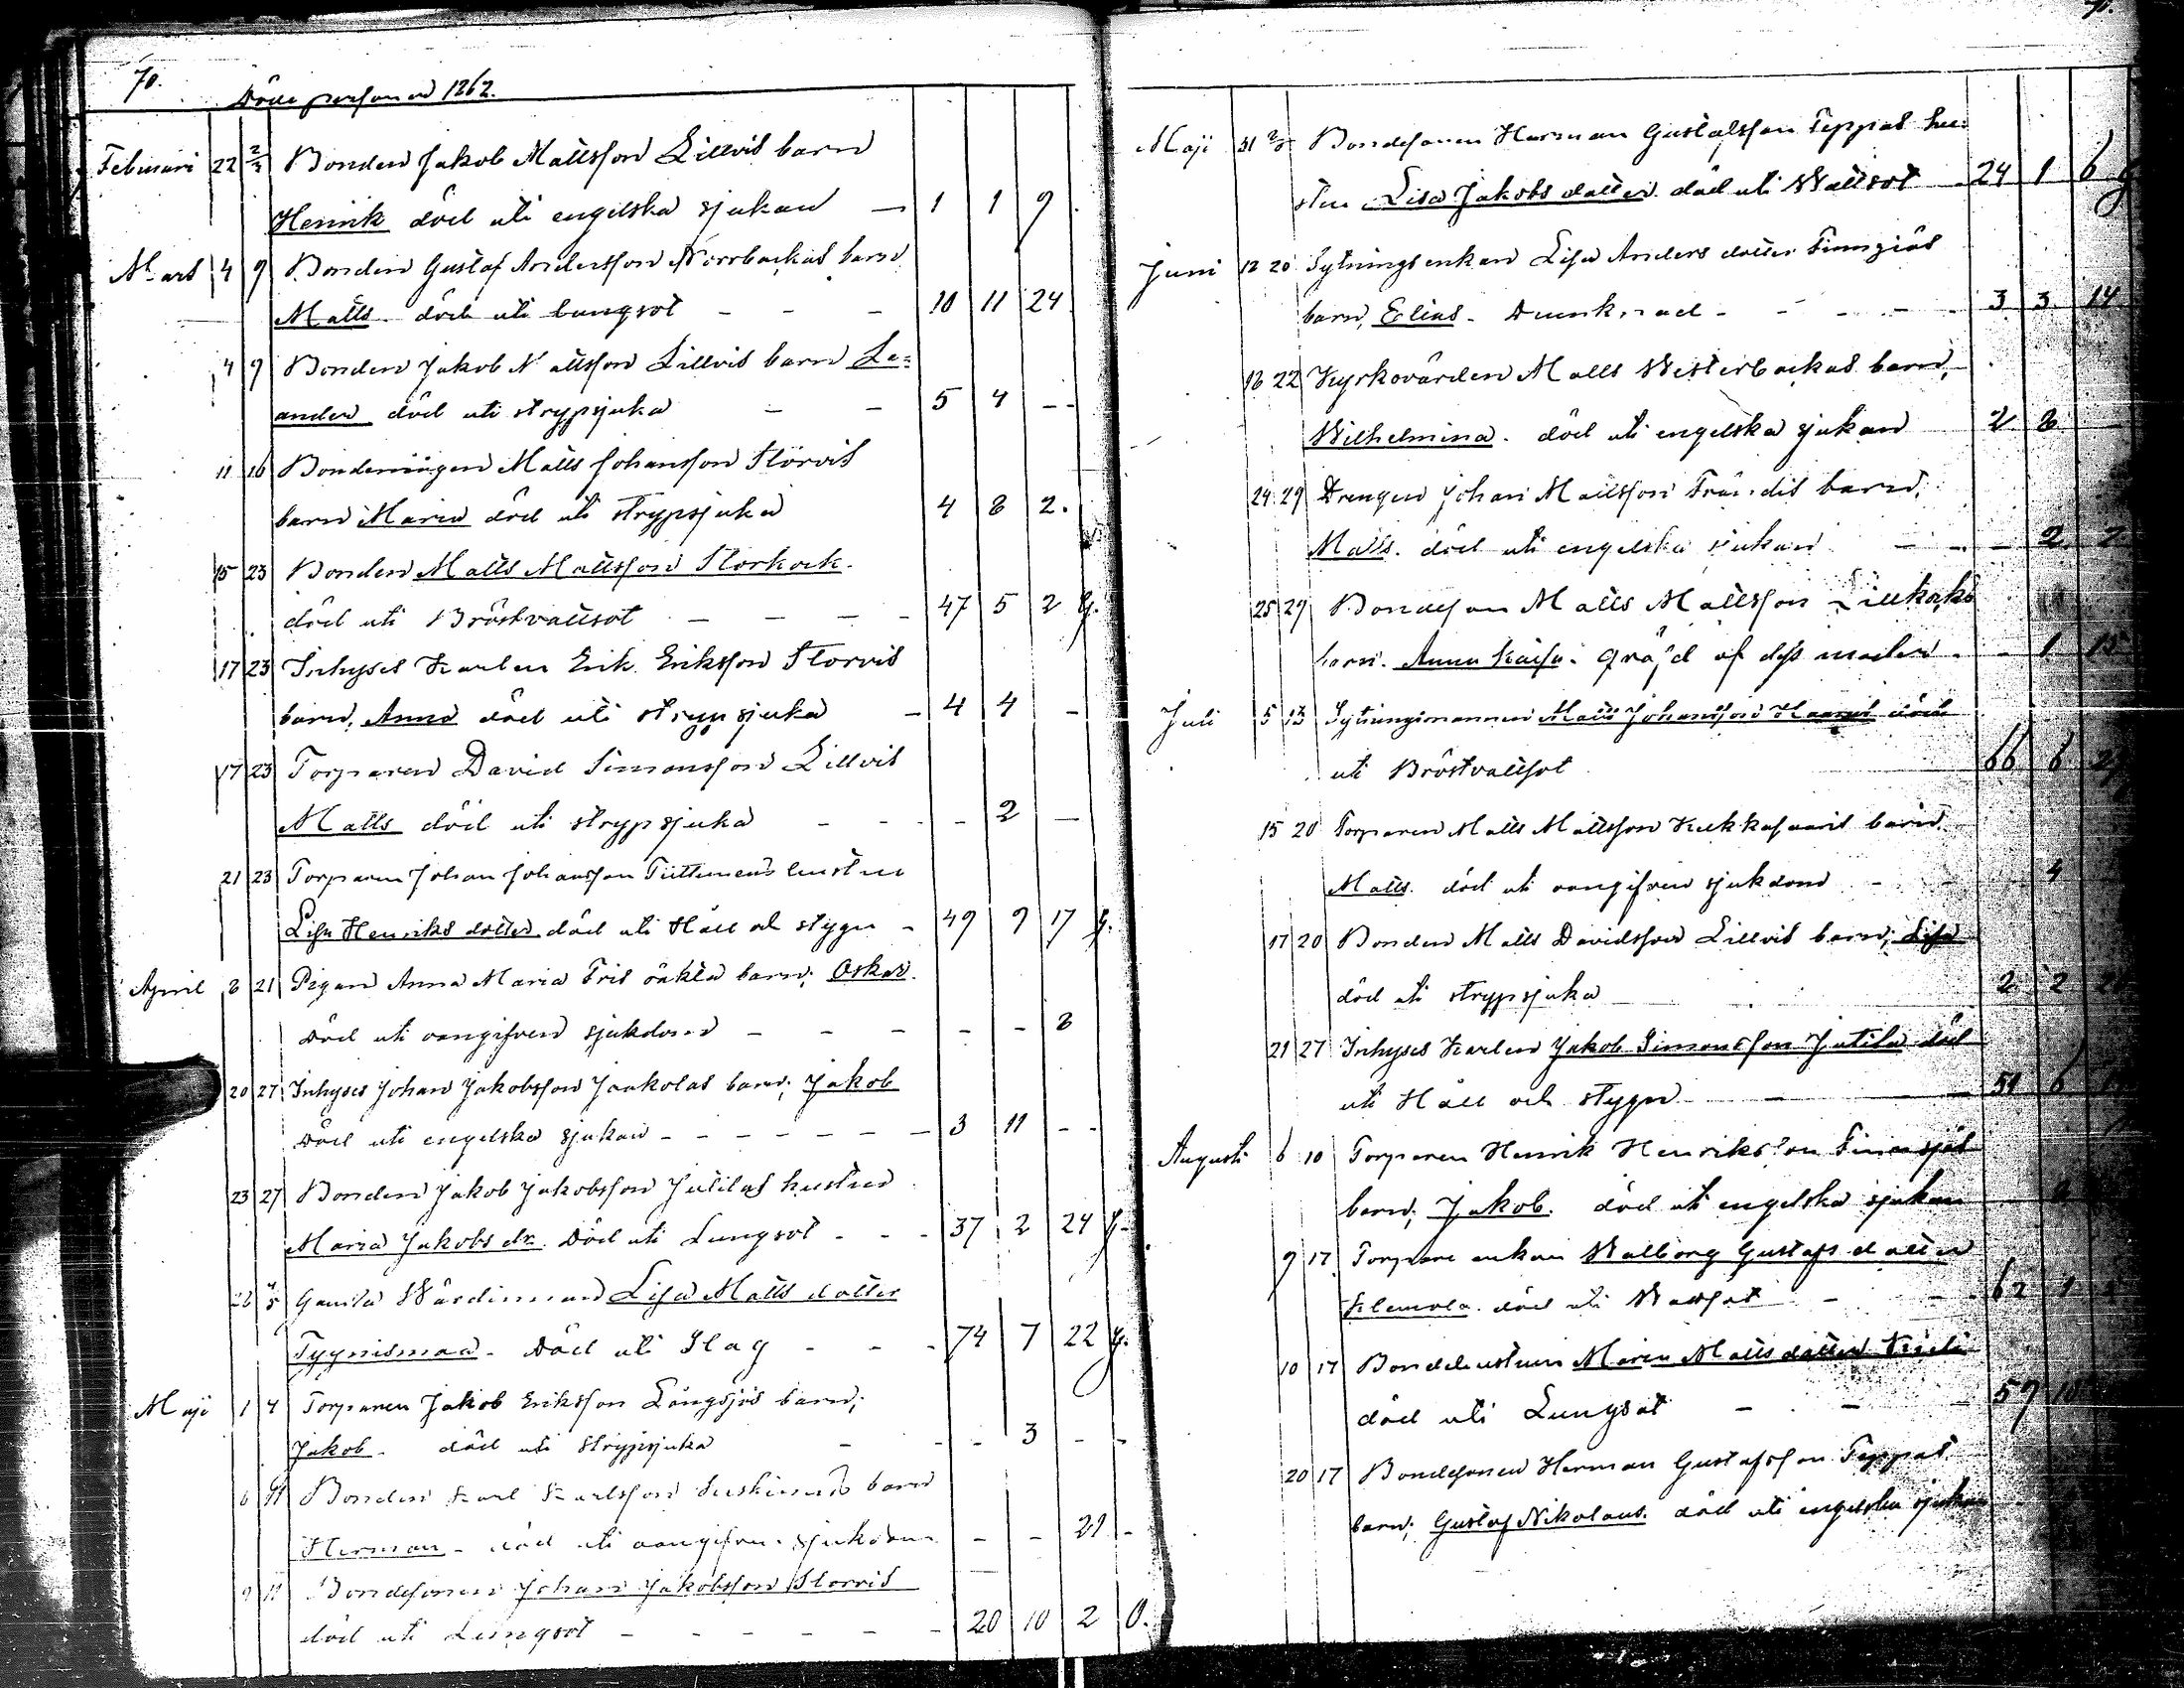 70.
Döde personer 1862.
Februari 22 2/3 Bonden Jakob Mattsson Lillvis barn
Henrik död uti engelska sjukan — 1 1 9
Mart 4 9 Bonden Gustaf Andersson Norrbackas barn
Matts död uti lungsot - - - 10 11 24
4 9 Bonden Jakob Mattsson Lillvis barn Le=
ander död uti strypsjuka - - 5 4 --
11 16 Bondemågen Matts Johansson Storvis
barn Maria död uti strypsjuka 4 8 2.
15 23 Bonden Matts Mattsson Storkock.
död uti Bröstvattsot - - - - 47 5 2 g.
17 23 Inhyses Karlen Erik Eriksson Storvis
barn, Anna död uti strypsjuka - 4 4 -
17 23 Torparen David Simonsson Lillvis
Matts död uti strypsjuka - - - 2 -
21 23 Torparen Johan Johansson hustru
Lisa Henriks dotter död uti Håll och stygn - 49 9 17 g.
April 8 21 Pigan Anna Maria Fris oäkta barn; Oskar.
död uti oangifven sjukdom - - - - - 8
20 27 Inhyses Johan Jakobsson Jaakolas barn; Jakob
död uti engelska sjukan - - - - - - 3 11 --
23 27 Bonden Jakob Jakobsson Jutilas hustru
Maria Jakobs dr. död uti Lungsot - - - 37 2 24 g.
4/5 Gamla Wärdinnan Lisa Matts dotter
död uti Slag - - - 74 7 22 g.
Maji 1 4 Torparen Jakob Eriksson Långsjös barn;
Jakob - död uti Strypsjuka - - - 3 - -
6 11 Bonden Karl Karlsson barn
Herman - död uti oangifven sjukdom - - 21 -
9 11 Bondesonen Johan Jakobsson Storvis
död uti Lungsot - - - - - - 20 10 2 O.
71.
Maji 31 2/6 Bondesonen Herman Gustafsson Teppas hu-
stru Lisa Jakobs dotter död uti Wattsot 24 1 6 g
Juni 12 20 Sytningsenkan Lisa Anders dotter Finnsjös
barn, Elias - Drunknad - - - - 3 3 14
16 22 Kyrkovärden Matts Westerbackas barn,
Wilhelmina. död uti engelska sjukan 2 8
24 29 Drengen Johan Mattsson Frändis barn,
Matts. död uti engelska sjukan - - - 2 2
25 29 Bondeson Matts Mattsson Lillkocks
barn. Anna Kaisa. qväfd af dess moder - - 1 15
Juli 5 13 Sytningsmannen Matts Johansson död
uti Bröstvattsot 66 6
15 20 Torparen Matts Mattsson Kukkasaaris barn,
Matts. död uti oangifven sjukdom - - 4
17 20 Bonden Matts Davidsson Lillvis barn; Lisa
död uti strypsjuka 2 2
21 27 Inhyses Karlen Jakob Simonsson Jutila död
uti Håll och stygn - - - 51 6
Augusti 6 10 Torparen Henrik Henriksson Finnsjös
barn; Jakob. död uti engelska sjukan
9 17 Torpare enkan Walborg Gustafs dotter
Klemola död uti Wattsot - - 62 1
10 17 Bondehustrun Maria Matts dotter
död uti Lungsot - - - 59 10
20 17 Bondesonen Herman Gustafsson Teppas
barn; Gustaf Nikolaus. död uti engelska sjukan